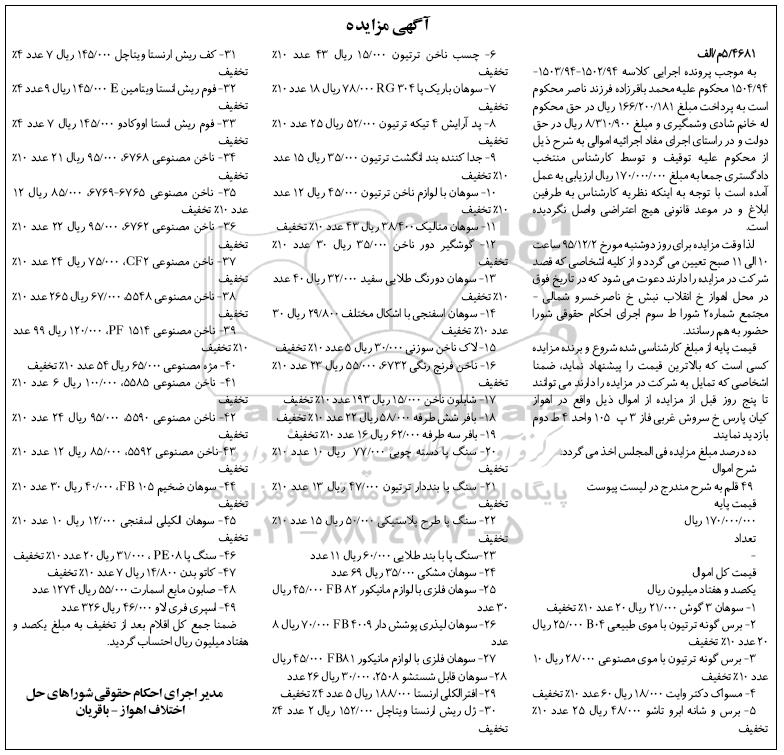 آگهی مزایده
۵/۴۶۸۱م/الف
به موجب پرونده اجرایی کلاسه ۱۵۰۲/۹۴-۱۵۰۳/۹۴-
۱۵۰۴/۹۴ محکوم علیه محمد باقرزاده فرزند ناصر محکوم
است به پرداخت مبلغ ۱۶۶/۲۰۰/۱۸۱ ریال در حق محکوم
له خانم شادی وشمگیری و مبلغ ۸/۳۱۰/۹۰۰ ریال در حق
دولت و در راستای اجرای مفاد اجرائیه اموالی به شرح ذیل
از محکوم علیه توقیف و توسط کارشناس منتخب
دادگستری جمعا به مبلغ ۱۷۰/۰۰۰/۰۰۰ ریال ارزیابی به عمل
آمده است با توجه به اینکه نظریه کارشناس به طرفین
ابلاغ و در موعد قانونی هیچ اعتراضی واصل نگردیده
است.
لذا وقت مزایده برای روز دوشنبه مورخ ۹۵/۱۲/۲ ساعت
۱۰ الی ۱۱ صبح تعیین می گردد و از کلیه اشخاصی که قصد
شرکت در مزایده را دارند دعوت می شود که در تاریخ فوق
در محل اهواز خ انقلاب نبش خ ناصرخسرو شمالی -
مجتمع شماره۲ شورا ط سوم اجرای احکام حقوقی شورا
حضور به هم رسانند.
قیمت پایه از مبلغ کارشناسی شده شروع و برنده مزایده
کسی است که بالاترین قیمت را پیشنهاد نماید، ضمنا
اشخاصی که تمایل به شرکت در مزایده را دارند می توانند
تا پنج روز قبل از مزایده از اموال ذیل واقع در اهواز
کیان پارس خ سروش غربی فاز ۳ پ ۱۰۵ واحد ۴ ط دوم
بازدید نمایند.
ده درصد مبلغ مزایده فی المجلس اخذ می گردد.
شرح اموال
۴۹ قلم به شرح مندرج در لیست پیوست
قیمت پایه
۱۷۰/۰۰۰/۰۰۰ ریال
تعداد
-
قیمت کل اموال
یکصد و هفتاد میلیون ریال
۱- سوهان ۳ گوش ۲۱/۰۰۰ ریال ۲۰ عدد ۱۰٪ تخفیف
۲- برس گونه ترتیون با موی طبیعی B۰۴ ۲۵/۰۰۰ ریال
۲۰ عدد ۱۰٪ تخفیف
۳- برس گونه ترتیون با موی مصنوعی ۲۸/۰۰۰ ریال ۱۰
عدد ۱۰٪ تخفیف
۴- مسواک دکتر وایت ۱۸/۰۰۰ ریال ۶۰ عدد ۱۰٪ تخفیف
۵- برس و شانه ابرو تاشو ۴۸/۰۰۰ ریال ۲۵ عدد ۱۰٪
تخفیف
۶- چسب ناخن ترتیون ۱۵/۰۰۰ ریال ۴۳ عدد ۱۰٪
تخفیف
۷- سوهان باریک پا RG ۳۰۴ ۷۸/۰۰۰ ریال ۱۸ عدد ۱۰٪
تخفیف
۸- پد آرایش ۴ تیکه ترتیون ۵۲/۰۰۰ ریال ۲۵ عدد ۱۰٪
تخفیف
۹- جدا کننده بند انگشت ترتیون ۳۵/۰۰۰ ریال ۱۵ عدد
۱۰٪ تخفیف
۱۰- سوهان با لوازم ناخن ترتیون ۴۵/۰۰۰ ریال ۱۲ عدد
۱۰٪ تخفیف
۱۱- سوهان متالیک ۳۸/۴۰۰ ریال ۴۳ عدد ۱۰٪ تخفیف
۱۲- گوشگیر دور ناخن ۳۵/۰۰۰ ریال ۳۰ عدد ۱۰٪
تخفیف
۱۳- سوهان دورنگ طلایی سفید ۳۲/۰۰۰ ریال ۴۰ عدد
۱۰٪ تخفیف
۱۴- سوهان اسفنجی با اشکال مختلف ۲۹/۸۰۰ ریال ۳۰
عدد ۱۰٪ تخفیف
۱۵- لاک ناخن سوزنی ۳۰/۰۰۰ ریال ۵ عدد ۱۰٪ تخفیف
۱۶- ناخن فرنچ رنگی ۶۷۳۲، ۵۵/۰۰۰ ریال ۲۳ عدد ۱۰٪
تخفیف
۱۷- شابلون ناخن ۱۵/۰۰۰ ریال ۱۹۳ عدد ۱۰٪ تخفیف
۱۸- بافر شش طرفه ۵۸/۰۰۰ ریال ۲۲ عدد ۱۰٪ تخفیف
۱۹- بافر سه طرفه ۶۲/۰۰۰ ریال ۱۶ عدد ۱۰٪ تخفیف
۲۰- سنگ پا دسته چوبی ۷۷/۰۰۰ ریال ۱۰ عدد ۱۰٪
تخفیف
۲۱- سنگ پا بنددار ترتیون ۴۷/۰۰۰ ریال ۱۳ عدد ۱۰٪
تخفیف
۲۲- سنگ پا طرح پلاستیکی ۵۰/۰۰۰ ریال ۱۵ عدد ۱۰٪
تخفیف
۲۳- سنگ پا با بند طلایی ۶۰/۰۰۰ ریال ۱۱ عدد
۲۴- سوهان مشکی ۳۵/۰۰۰ ریال ۶۹ عدد
۲۵- سوهان فلزی با لوازم مانیکور FB ۸۲ ۴۵/۰۰۰ ریال
۳۰ عدد
۲۶- سوهان لیزری پوشش دار FB ۴۰۰۹ ۷۰/۰۰۰ ریال ۸
عدد
۲۷- سوهان فلزی با لوازم مانیکور FB۸۱ ۴۵/۰۰۰ ریال
۲۸- سوهان قابل شستشو ۲۵۰۸، ۳۰/۰۰۰ ریال ۲۶ عدد
۲۹- افترالکلی ارنستا ۱۸۸/۰۰۰ ریال ۵ عدد ۴٪ تخفیف
۳۰- ژل ریش ارنستا ویتاچل ۱۵۲/۰۰۰ ریال ۲ عدد ۴٪
تخفیف
۳۱- کف ریش ارنستا ویتاچل ۱۴۵/۰۰۰ ریال ۷ عدد ۴٪
تخفیف
۳۲- فوم ریش انستا ویتامین E ۱۴۵/۰۰۰ ریال ۹ عدد ۴٪
تخفیف
۳۳- فوم ریش انستا اووکادو ۱۴۵/۰۰۰ ریال ۷ عدد ۴٪
تخفیف
۳۴- ناخن مصنوعی ۶۷۶۸، ۹۵/۰۰۰ ریال ۲۱ عدد ۱۰٪
تخفیف
۳۵- ناخن مصنوعی ۶۷۶۵-۶۷۶۹، ۸۵/۰۰۰ ریال ۱۲
عدد ۱۰٪ تخفیف
۳۶- ناخن مصنوعی ۶۷۶۲، ۹۵/۰۰۰ ریال ۲۲ عدد ۱۰٪
تخفیف
۳۷- ناخن مصنوعی CF۲، ۷۵/۰۰۰ ریال ۲۴ عدد ۱۰٪
تخفیف
۳۸- ناخن مصنوعی ۵۵۴۸، ۶۷/۰۰۰ ریال ۲۶۵ عدد ۱۰٪
تخفیف
۳۹- ناخن مصنوعی PF ۱۵۱۴، ۱۲۰/۰۰۰ ریال ۹۹ عدد
۱۰٪ تخفیف
۴۰- مژه مصنوعی ۶۵/۰۰۰ ریال ۵۴ عدد ۱۰٪ تخفیف
۴۱- ناخن مصنوعی ۵۵۸۵، ۱۰۰/۰۰۰ ریال ۶ عدد ۱۰٪
تخفیف
۴۲- ناخن مصنوعی ۵۵۹۰، ۹۵/۰۰۰ ریال ۲۴ عدد ۱۰٪
تخفیف
۴۳- ناخن مصنوعی ۵۵۹۲، ۸۵/۰۰۰ ریال ۱۲ عدد ۱۰٪
تخفیف
۴۴- سوهان ضخیم FB ۱۰۵، ۴۰/۰۰۰ ریال ۳۰ عدد ۱۰٪
تخفیف
۴۵- سوهان الکیلی اسفنجی ۱۲/۰۰۰ ریال ۱۰ عدد ۱۰٪
تخفیف
۴۶- سنگ پا PE۰۸ ، ۳۱/۰۰۰ ریال ۲۰ عدد ۱۰٪ تخفیف
۴۷- کاتو بدن ۱۴/۸۰۰ ریال ۷ عدد ۱۰٪ تخفیف
۴۸- صابون مایع اسمارت ۵۵/۰۰۰ ریال ۱۲۷۴ عدد
۴۹- اسپری فری لاو ۴۶/۰۰۰ ریال ۳۲۶ عدد
ضمنا جمع کل اقلام بعد از تخفیف به مبلغ یکصد و
هفتاد میلیون ریال احتساب گردید.
مدیر اجرای احکام حقوقی شوراهای حل
اختلاف اهواز - باقریان
پایگاه اطلاع رسانی مناقصه و مزایده
۰۲۱-۸۸۳۴۹۶۷۰-۵